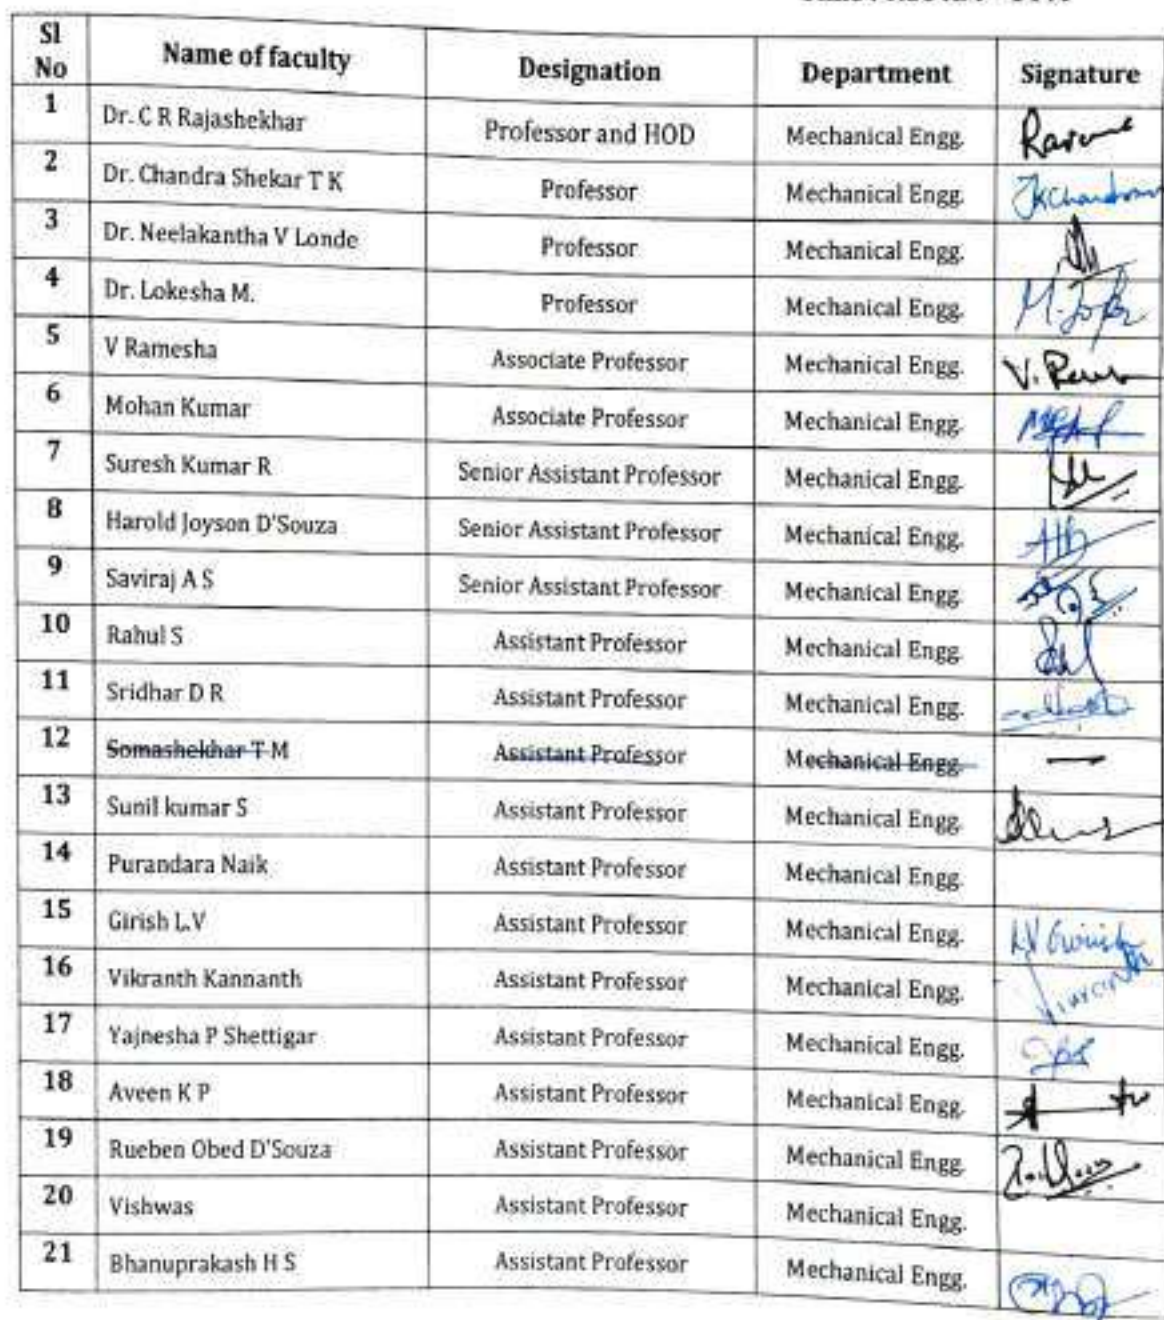 Sl No Name of faculty Designation Department Signature
1 Dr. C R Rajashekhar Professor and HOD Mechanical Engg.
2 Dr. Chandra Shekar T K Professor Mechanical Engg.
3 Dr. Neelakantha V Londe Professor Mechanical Engg.
4 Dr. Lokesha M. Professor Mechanical Engg.
5 V Ramesha Associate Professor Mechanical Engg.
6 Mohan Kumar Associate Professor Mechanical Engg.
7 Suresh Kumar R Senior Assistant Professor Mechanical Engg.
8 Harold Joyson D'Souza Senior Assistant Professor Mechanical Engg.
9 Saviraj A S Senior Assistant Professor Mechanical Engg.
10 Rahul S Assistant Professor Mechanical Engg.
11 Sridhar D R Assistant Professor Mechanical Engg.
12 Somashekhar T M Assistant Professor Mechanical Engg. —
13 Sunil kumar S Assistant Professor Mechanical Engg.
14 Purandara Naik Assistant Professor Mechanical Engg.
15 Girish L.V Assistant Professor Mechanical Engg.
16 Vikranth Kannanth Assistant Professor Mechanical Engg.
17 Yajnesha P Shettigar Assistant Professor Mechanical Engg.
18 Aveen K P Assistant Professor Mechanical Engg.
19 Rueben Obed D'Souza Assistant Professor Mechanical Engg.
20 Vishwas Assistant Professor Mechanical Engg.
21 Bhanuprakash H S Assistant Professor Mechanical Engg.